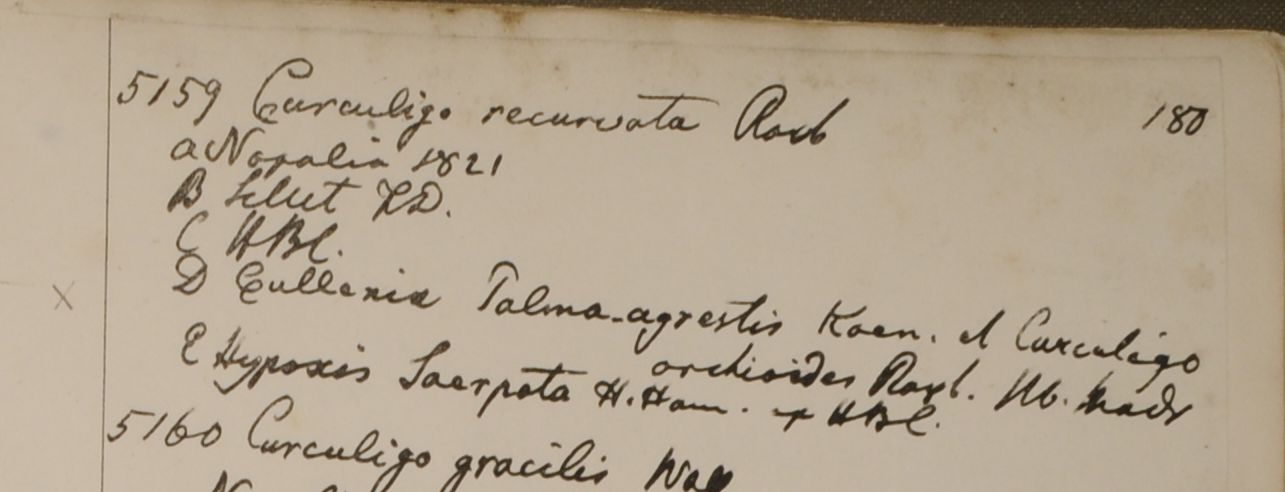 5159 Curculigo recurvata Roxb 180
a Napalia 1821
B Sillet FD.
C HBC.
D Gullenia Palma-agrestis Koen. et Curculigo
orchioides Roxb. Hb. Madr
E Hypoxis Soerpata H. Ham. ex HBC.
5160 Curculigo gracilis Wall